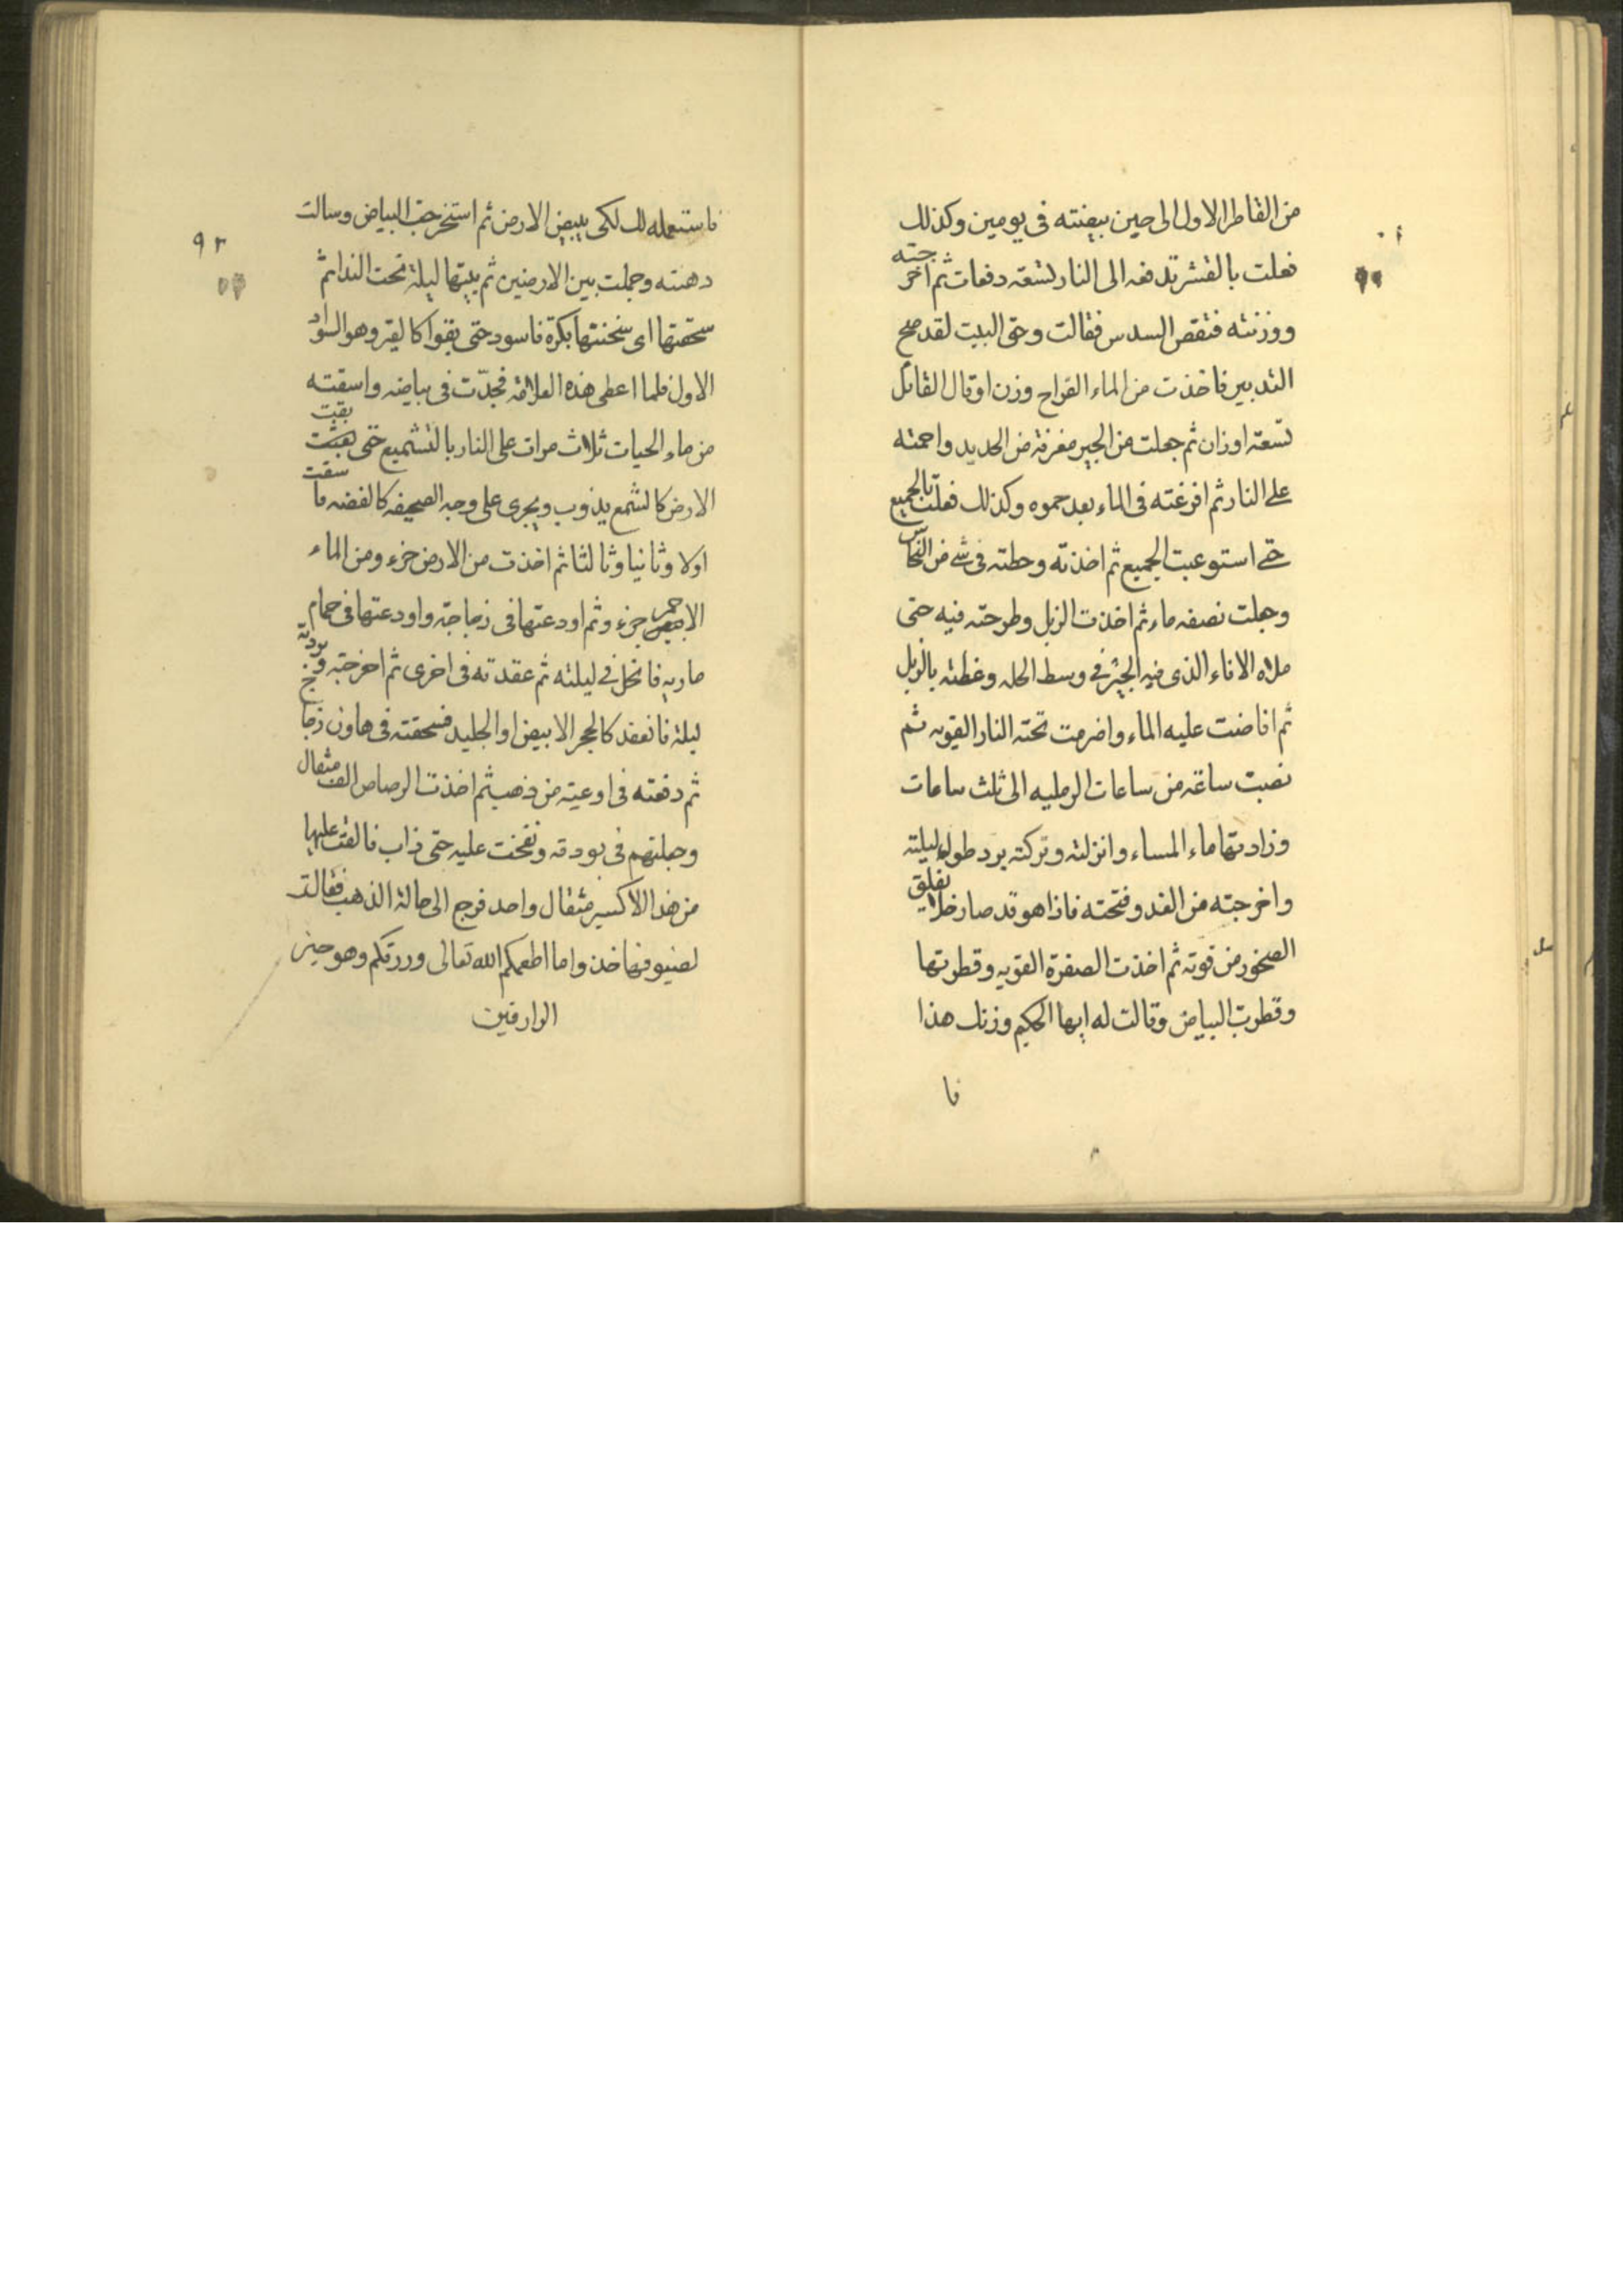 من القاطر الاول الى حين بيضته فى يومين وكذلك
فعلت بالقشر تدفعه الى النار لتسعة دفعات ثم اخرجته
ووزنته فنقص السدس فقالت وحق البيت لقد صح
التدبير فاخذت من الماء القراح وزن او قال القائل
تسعة اوزان ثم جعلت من الجير مغرفة من الحديد واحمته
على النار ثم افرغته فى الماء بعد حموه وكذلك فعلت بالجميع
حتى استوعبت الجميع ثم اخذته وحطته فى شى من النحاس
وجعلت نصفه ماء ثم اخذت الزبل وطرحته فيه حتى
ملاه الاناء الذى فيه الجير فى وسط الحله وغطته بالزبل
ثم افاضت عليه الماء واضرمت تحته النار القويه ثم
نصبت ساعة من ساعات الرمليه الى ثلث ساعات
وزادتها ماء المساء وانزلته وتركته برد طول ليلته
واخرجته من الغد وفتحته فاذا هو قد صار خلا يفلق
الصخور من قوته ثم اخذت الصفرة القويه وقطرتها
وقطرت البياض وقالت له ايها الحكيم وزنك هذا
فا
٩٢
فاستعمله لك لكى يبيض الارض ثم استخرجت البياض وسالت
دهنته وجعلت بين الارضين ثم بيتها ليلة تحت الندا ثم
سحقتها اى سخنتها بكرة فاسود حتى بقوا كالقير وهو السواد
الاول فلما اعطى هذه العلامة فجدّت فى بياضه واسقته
من ماء الحيات ثلاث مرات على النار بالتشميع حتى بقيت
الارض كالشمع يذوب ويجرى على وجه الصحيفه كالفضه ما سقت
اولا وثانيا وثالثا ثم اخذت من الارض جزء ومن الماء
الاحمر جزء وثم اودعتها فى زجاجة واودعتها فى حمام
ماريه فانحل فى ليلته ثم عقدته فى اخرى ثم اخرجته وبردته
ليلة فانعقد كالحجر الابيض او الجليد فسحقته فى هاون زجاج
ثم دفعته فى اوعية من ذهب ثم اخذت الرصاص الف مثقال
وجعلتهم فى بودقه ونفخت عليه حتى ذاب فالقت عليها
من هذا الاكسير مثقال واحد فرجع الى حالة الذهب فقالت
فخذ واما اطعمكم الله تعالى ورزقكم وهو خير
الرازقين